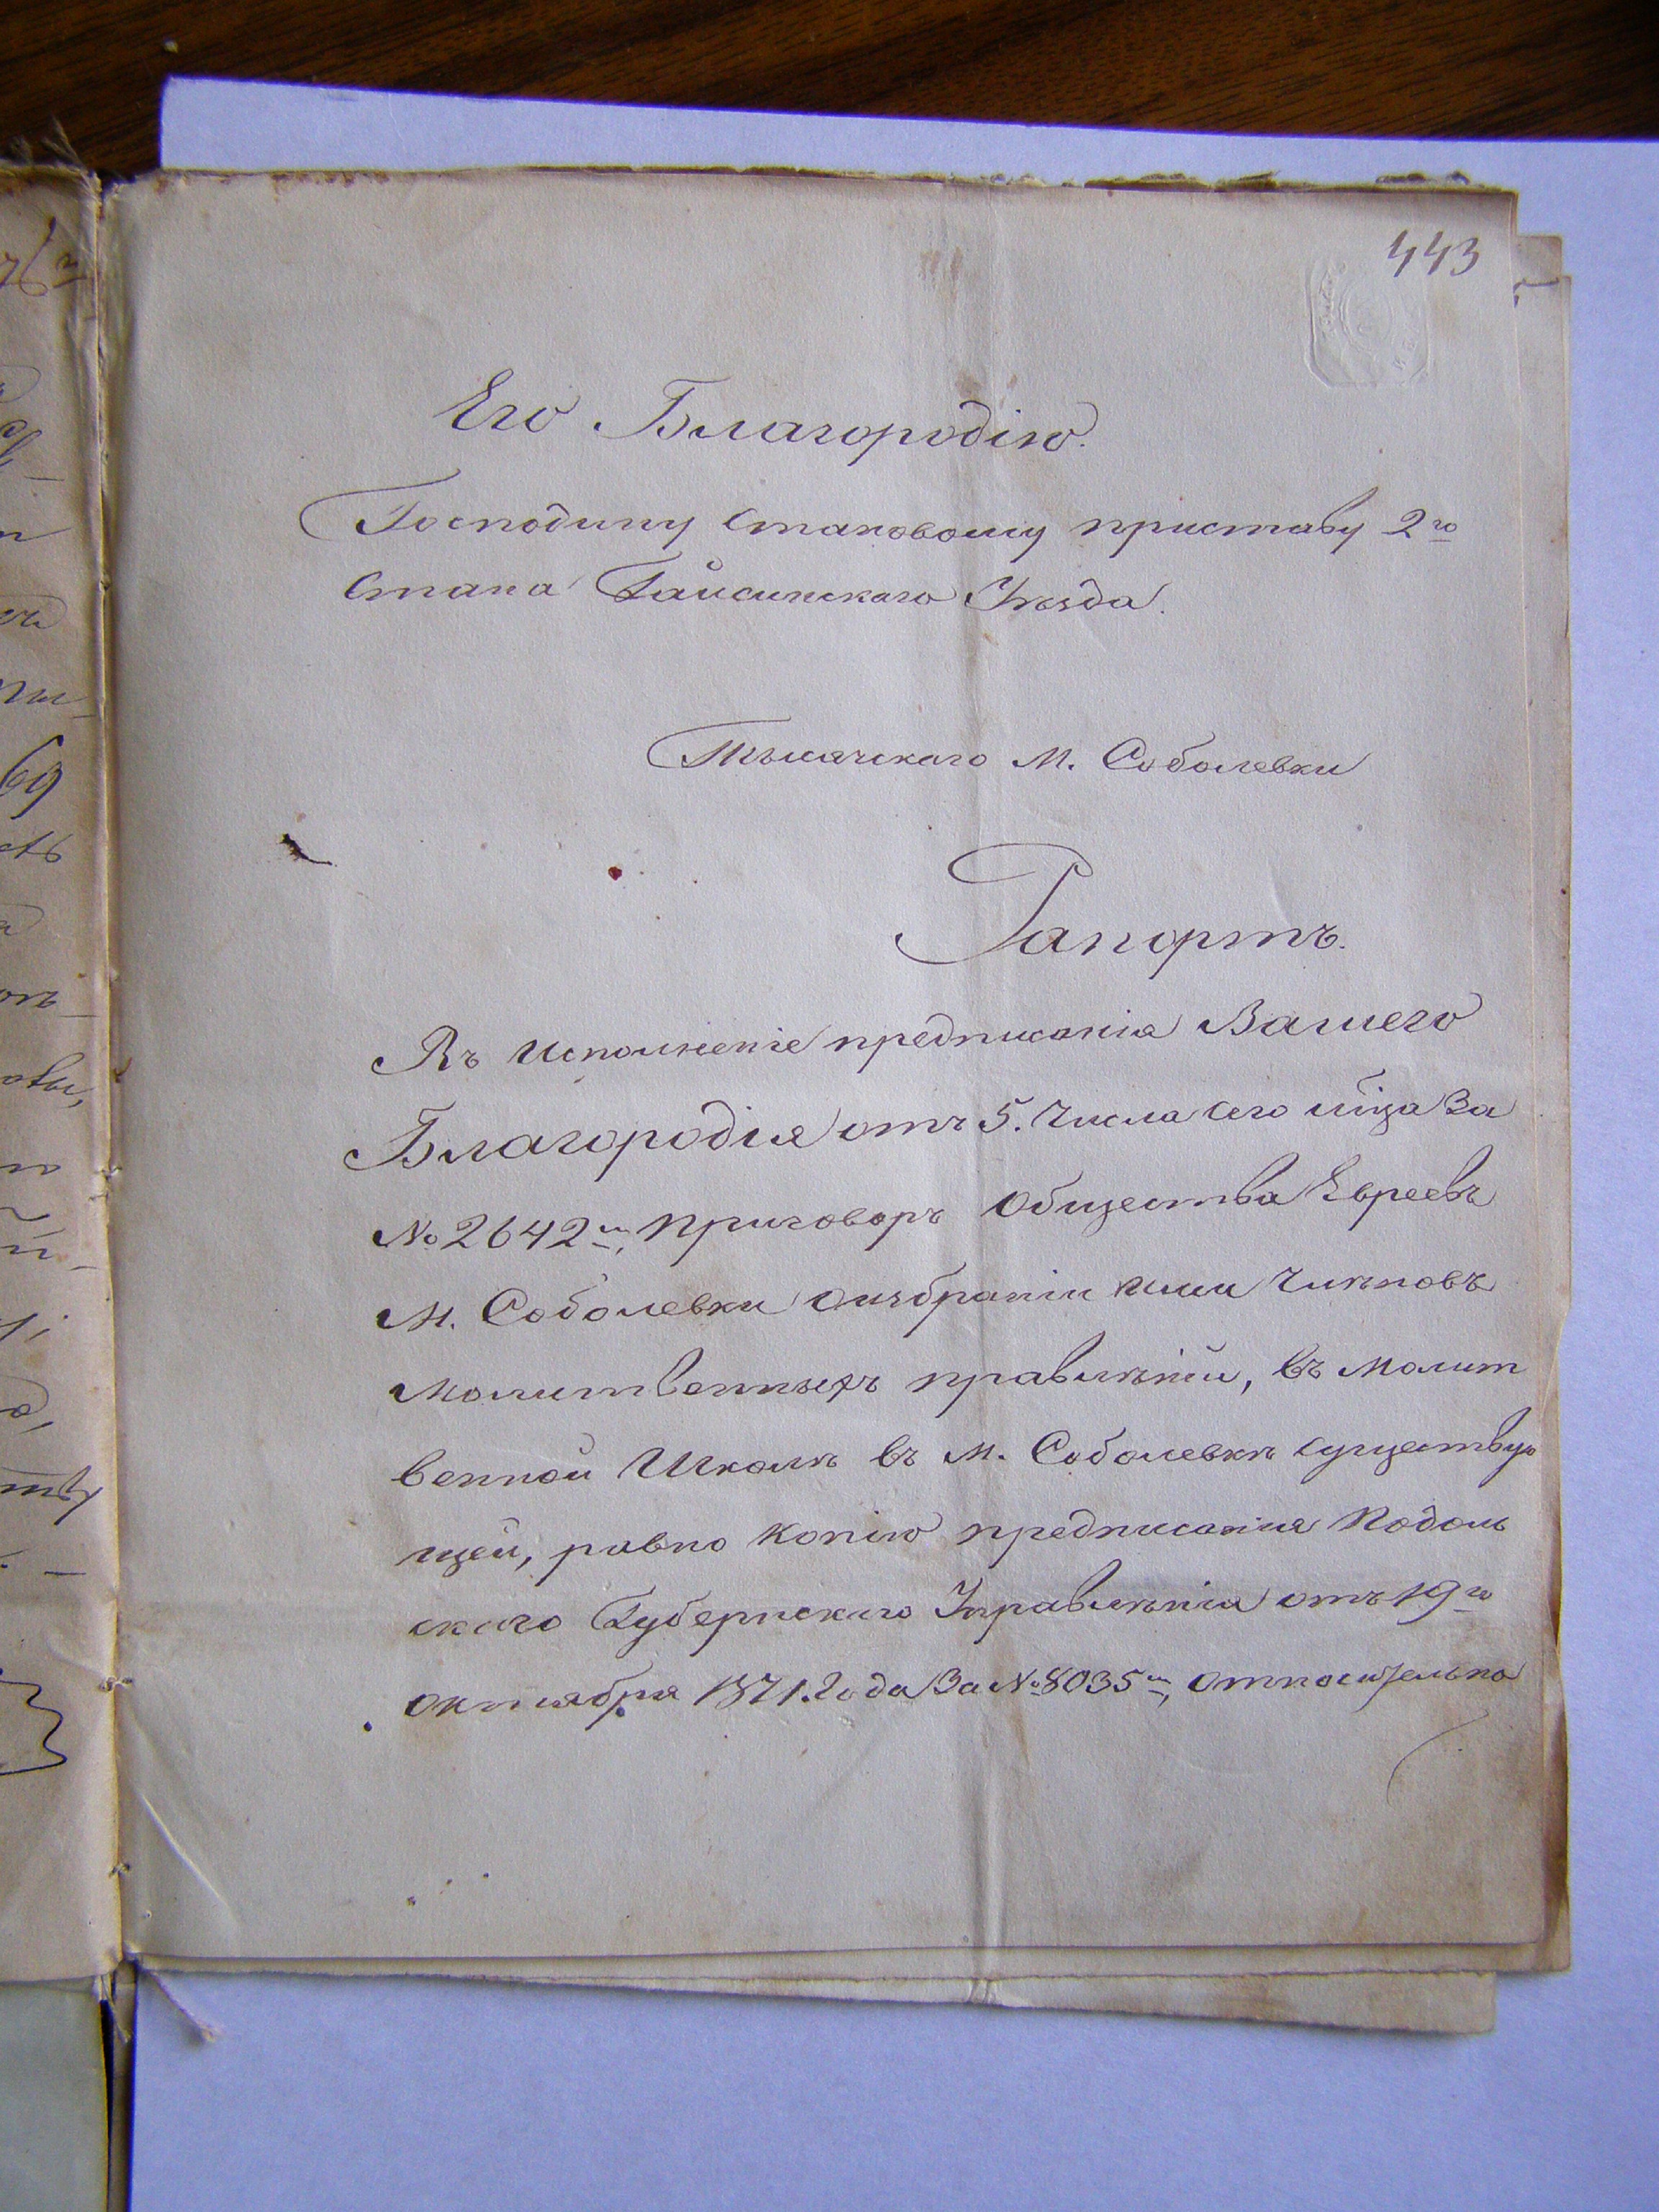 443
Его Благородію.
Господину Становому приставу 2го
Стана Гайсинскаго Уѣзда.
Тысячскаго М. Соболевки
Рапортъ.
Въ исполненіе предписанія Вашего
Благородія отъ 5. Числа сего мца за
№ 2642м, приговоръ Общества Евреевъ
М. Соболевки о избраніи ими Чиновъ
молитвенныхъ правленій, въ молит
венной Школѣ въ М. Соболевкѣ существую
щей, равно Копію предписанія Подоль
скаго Губернскаго Управленія отъ 19го
октября 1871. Года За № 8035м, относительно